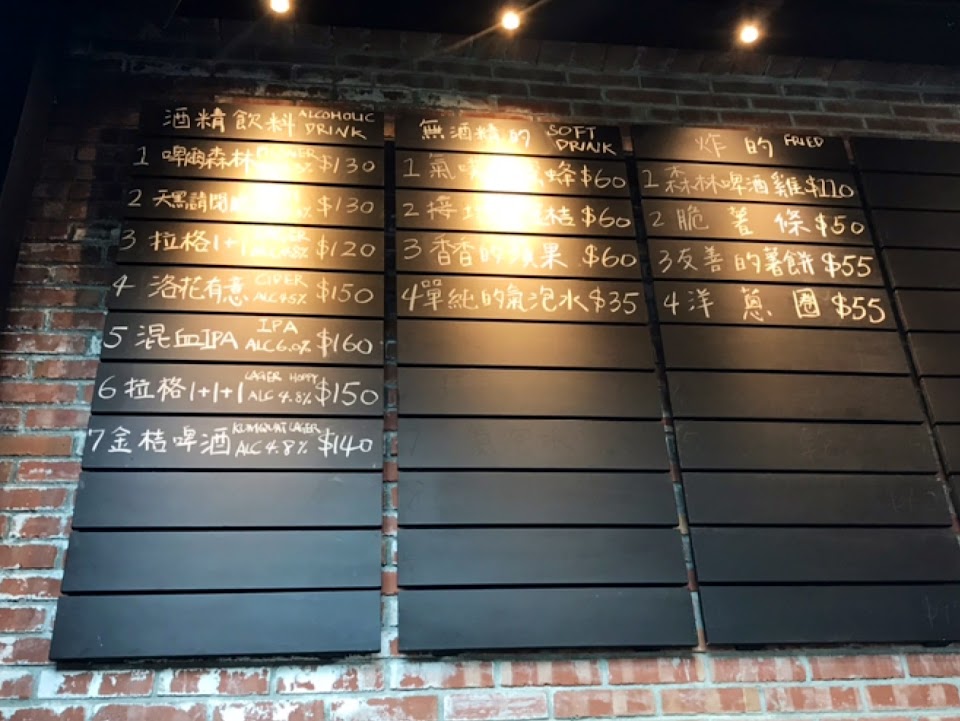 酒精飲料 ALCOHOLIC DRINK
1 啤爾森林 $130
2 天黑請閉 $130
3 拉格1+1 $120
4 洛花有意 CIDER ALC 4.5% $150
5 混血IPA IPA ALC 6.0% $160
6 拉格1+1+1 LAGER HOPPY ALC 4.8% $150
7 金桔啤酒 KUMQUAT LAGER ALC 4.8% $140
無酒精的 SOFT DRINK
1 氣 蜂 $60
2 接 桔 $60
3 香香的蘋果 $60
4 單純的氣泡水 $35
炸的 FRIED
1 森林啤酒雞 $110
2 脆薯條 $50
3 友善的薯餅 $55
4 洋蔥圈 $55